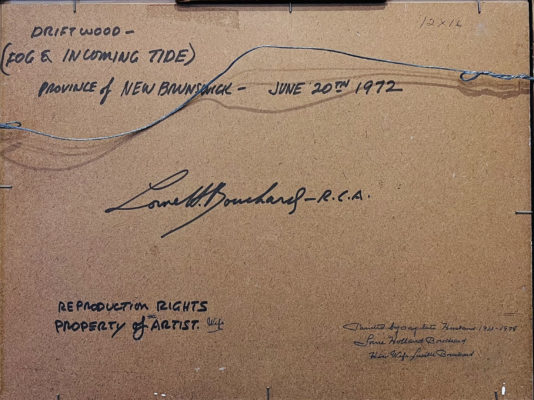 DRIFTWOOD –
12 x 16
(FOG & INCOMING TIDE)
PROVINCE of NEW BRUNSWICK – JUNE 20TH 1972
Lorne H. Bouchard – R.C.A.
REPRODUCTION RIGHTS
PROPERTY of the ARTIST. Wife
Painted by my late Husband 1913-1978
Lorne Holland Bouchard
His Wife Lucille Bouchard